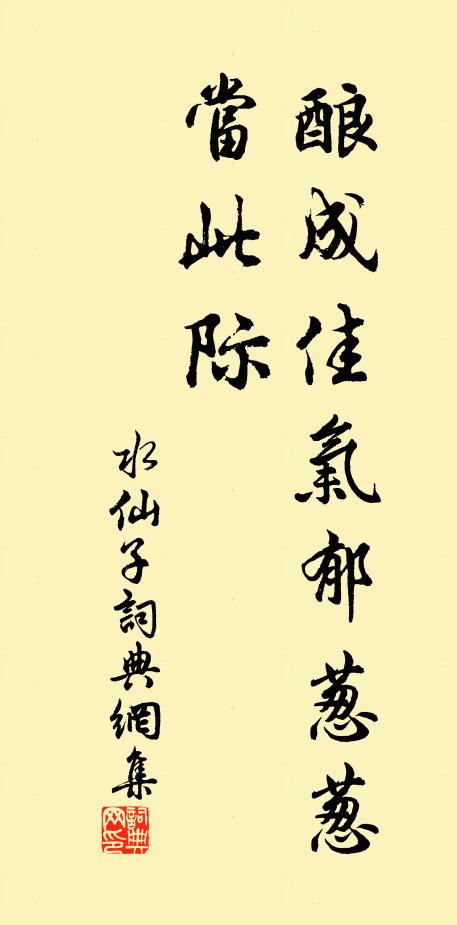 酿成佳氣郁葱葱
當此际
水仙子詞典網集
詞典网印